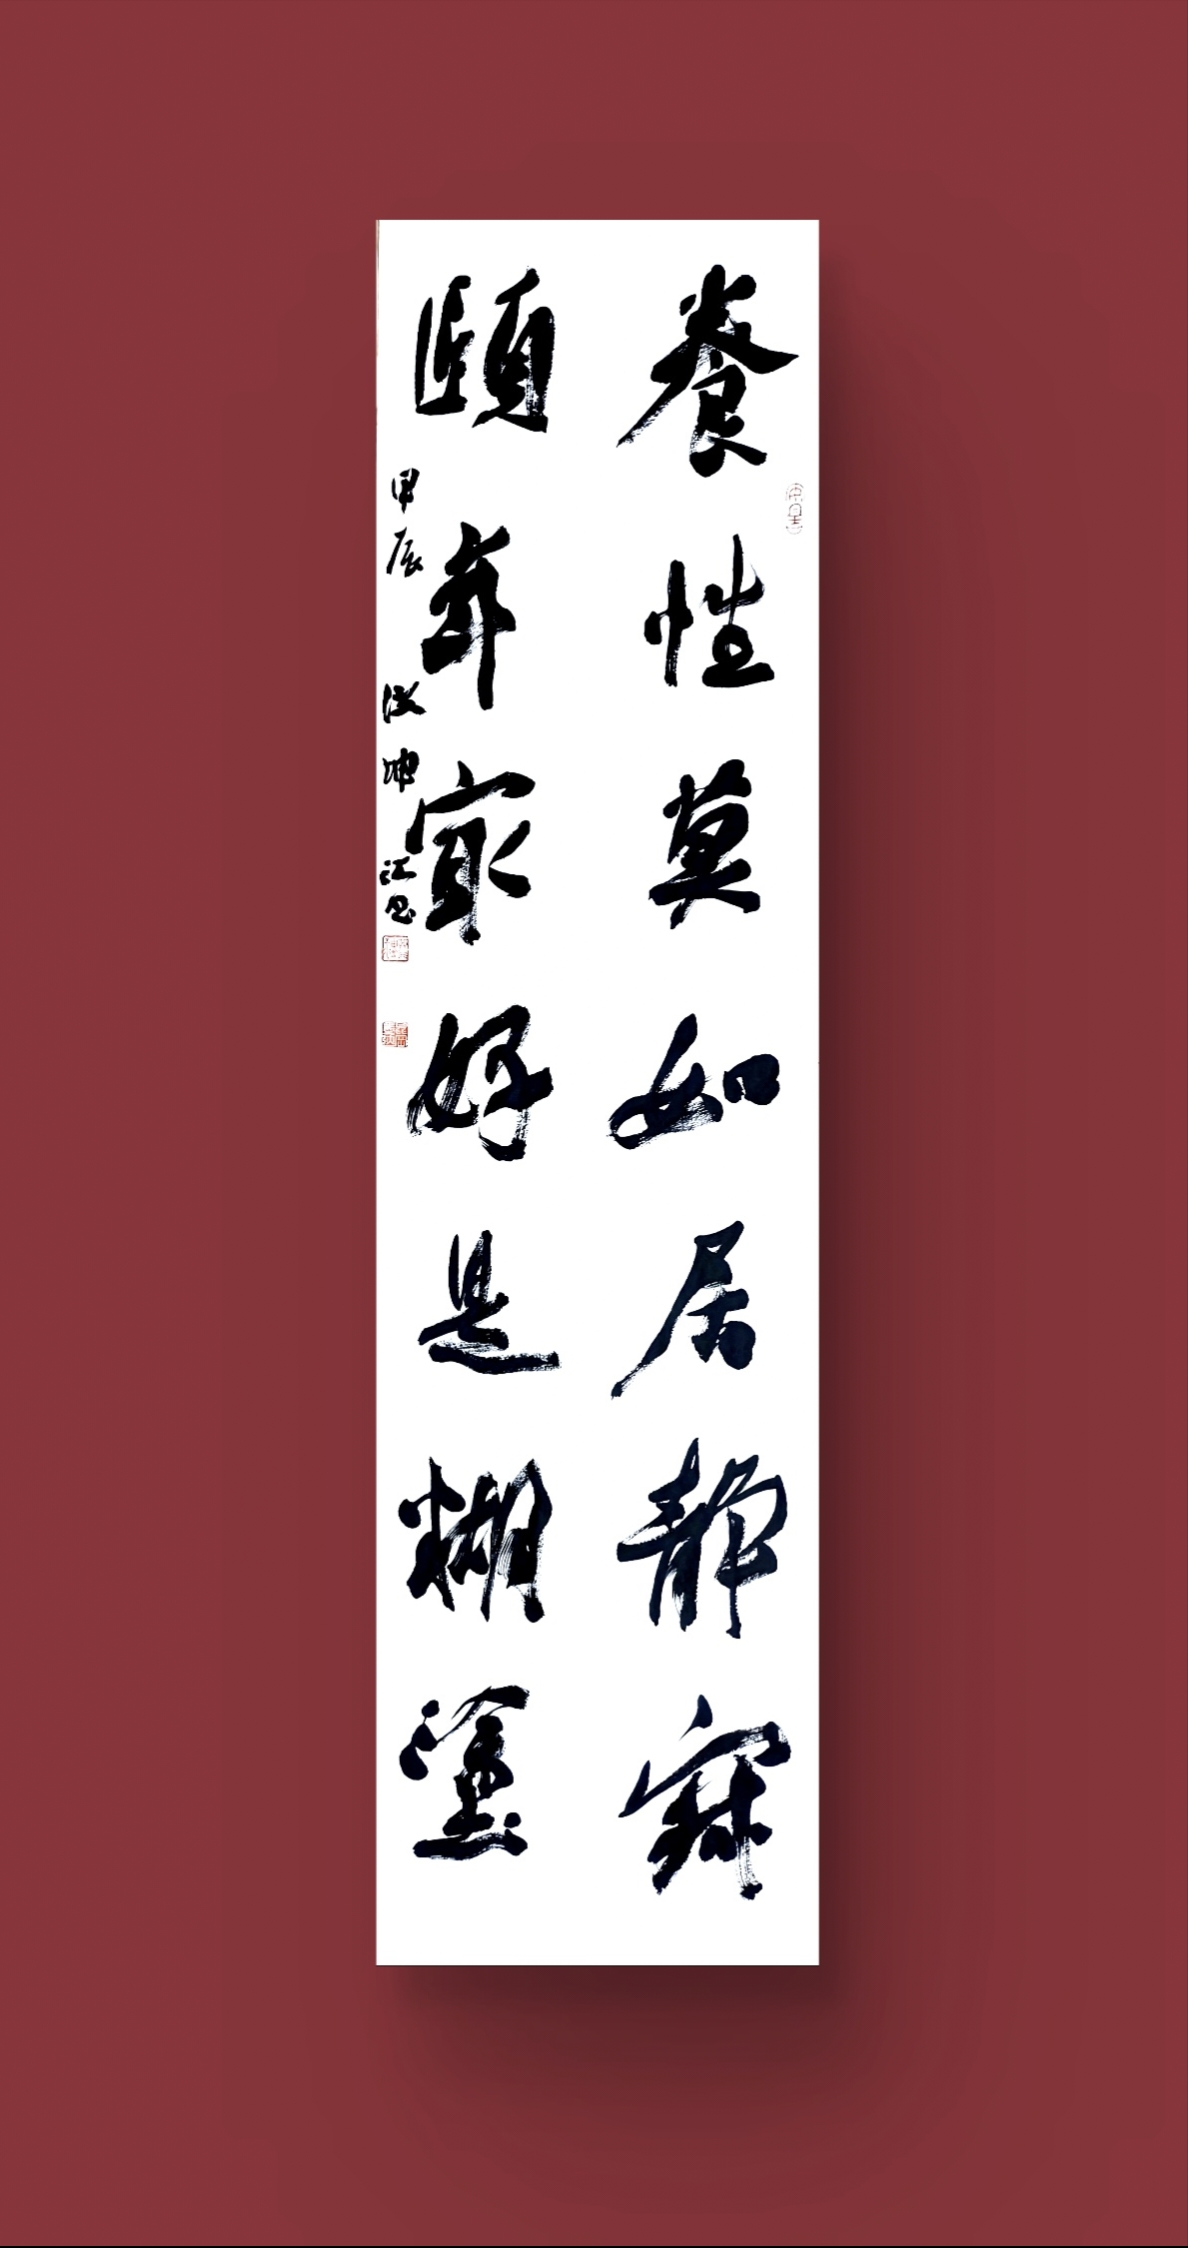 養性莫如居静寂
頤年最好是糊塗
甲辰 坤江書